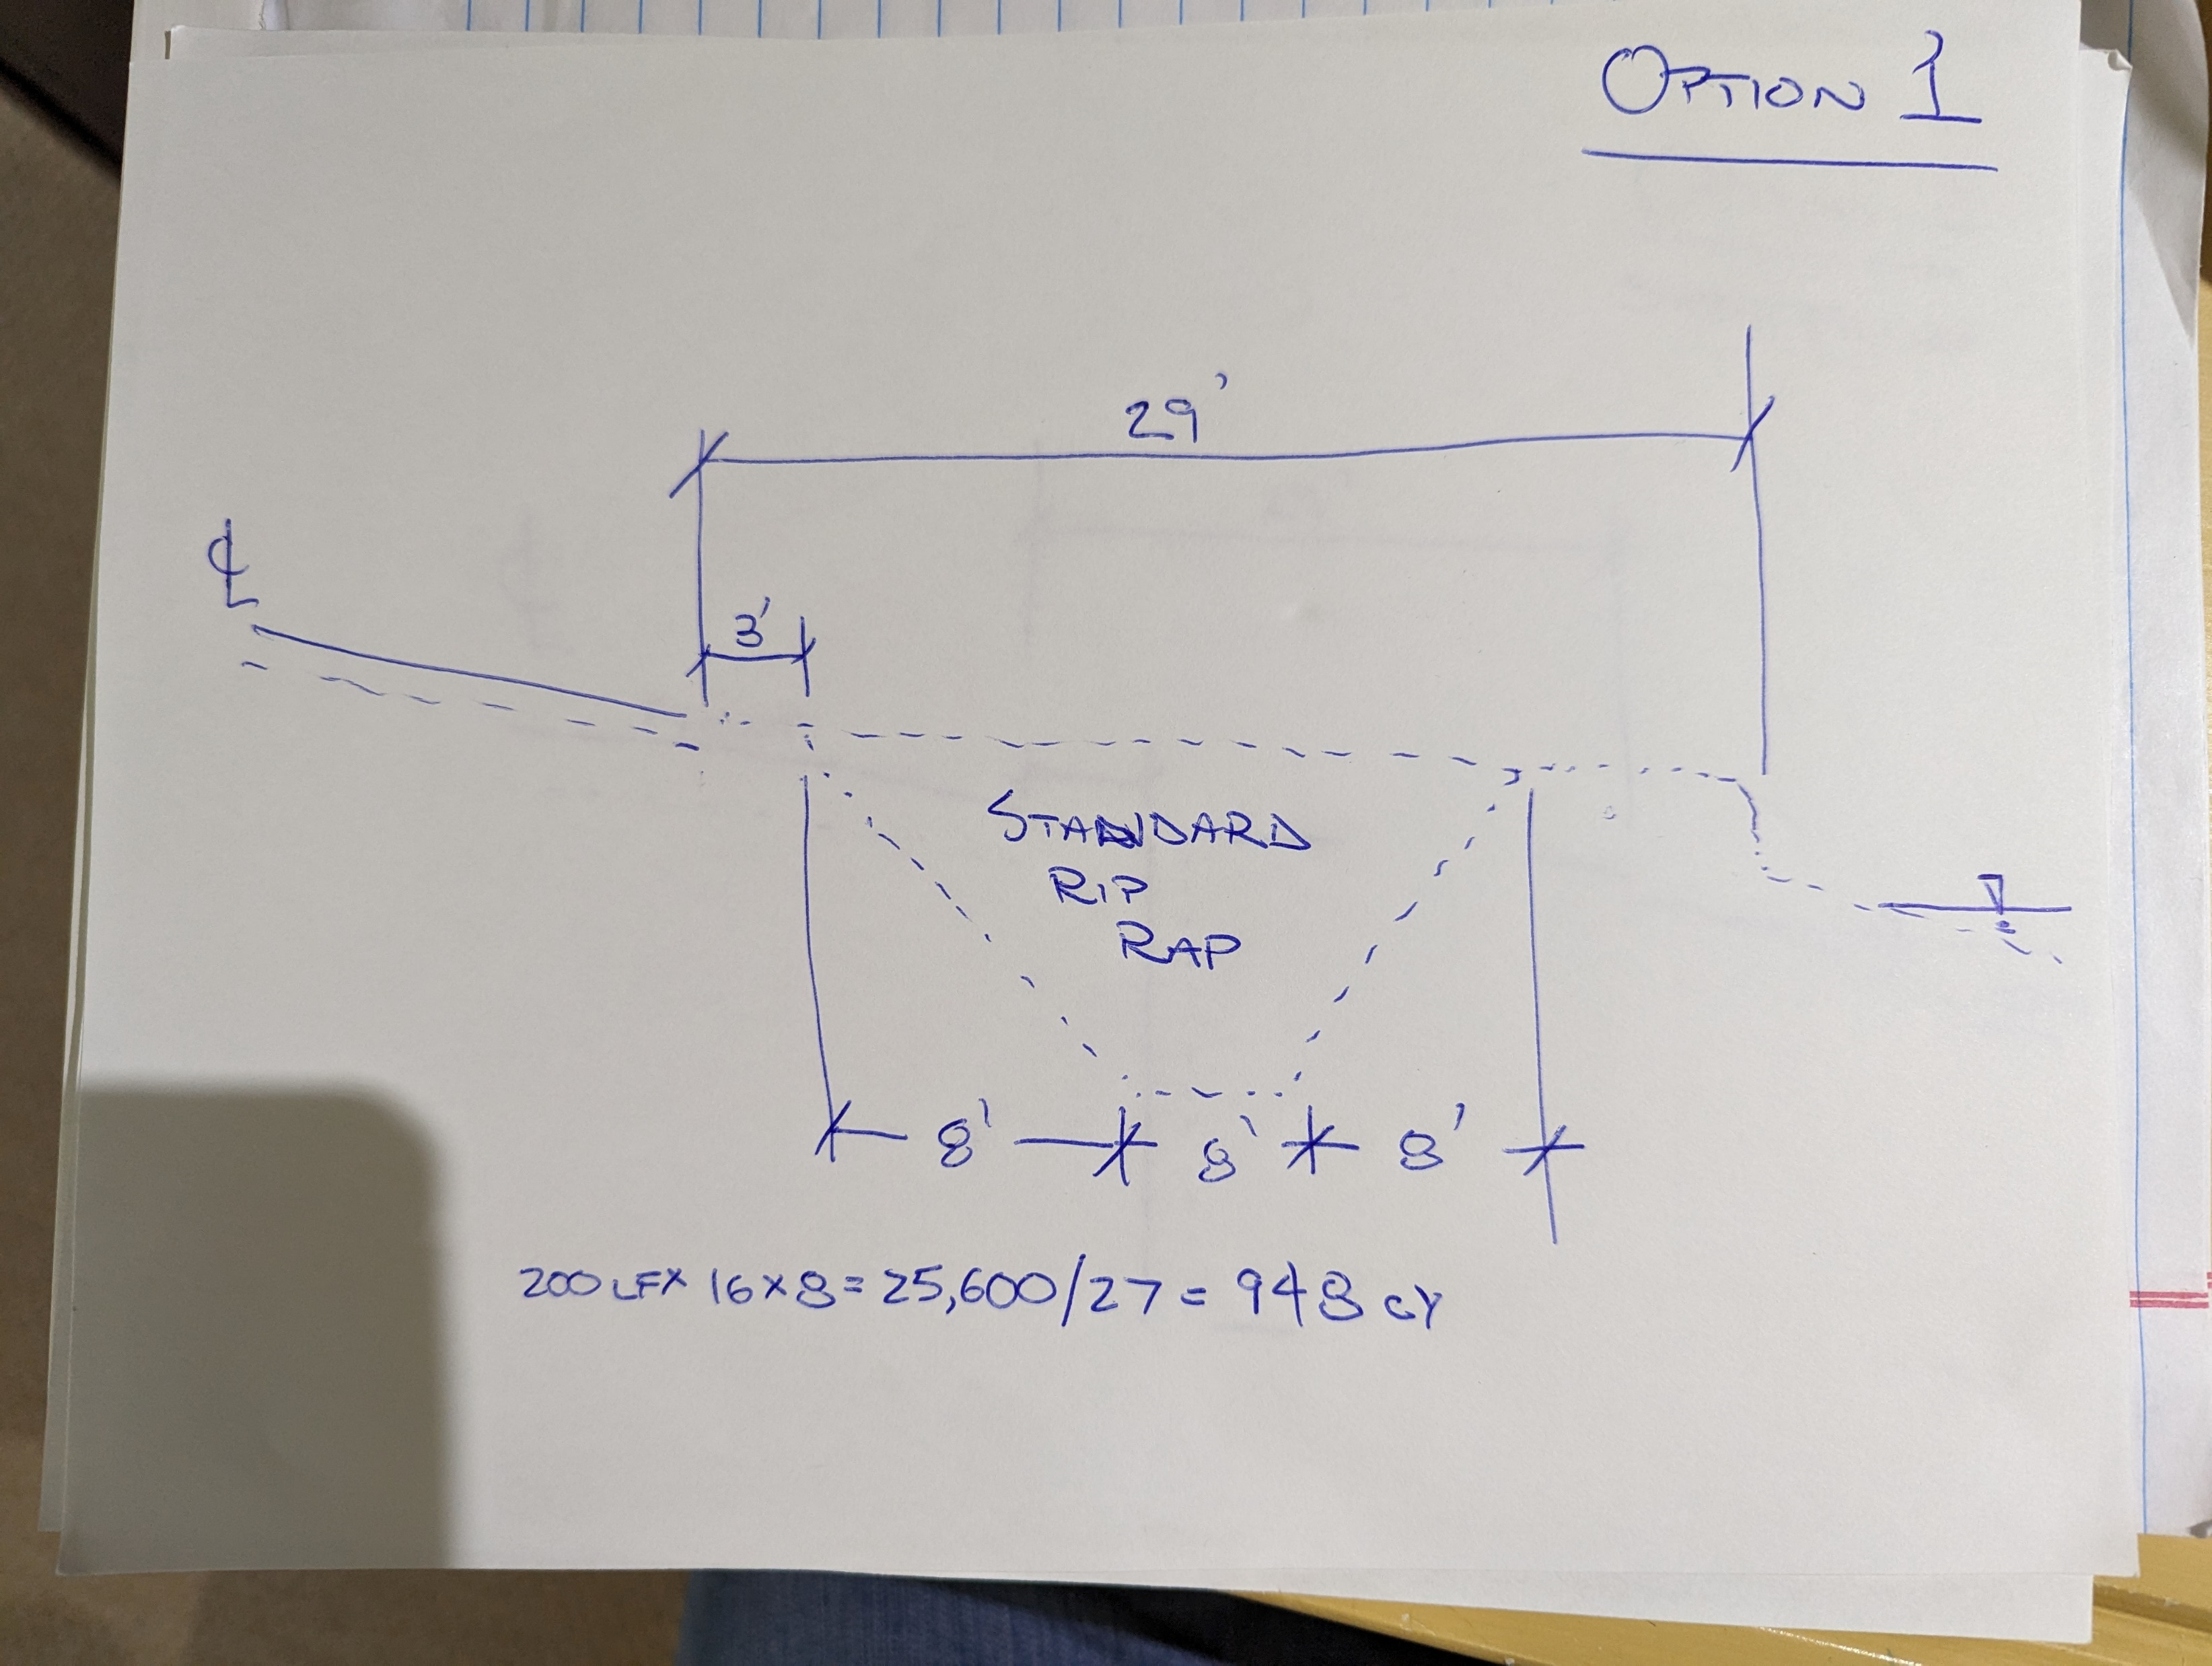 OPTION 1
29'
℄
3'
STANDARD
RIP
RAP
8' 8' 8'
200 LF x 16 x 8 = 25,600/27 = 948 CY